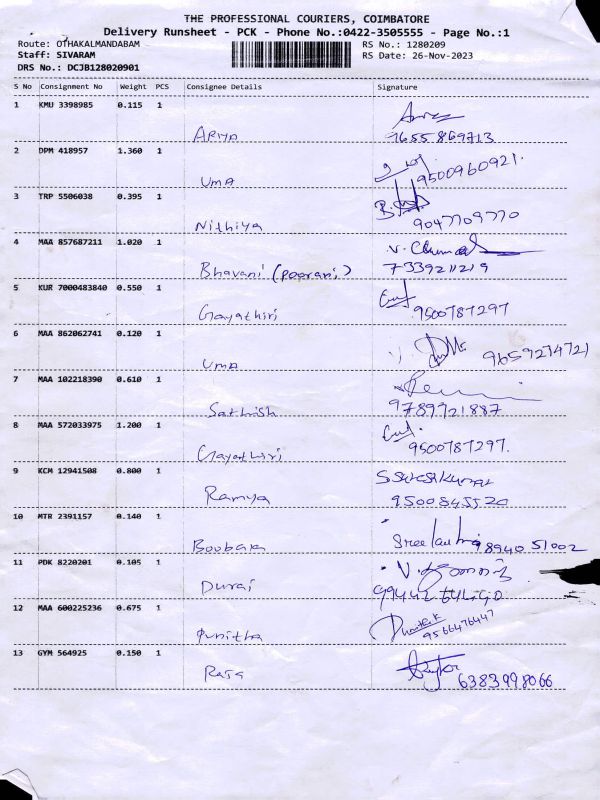 THE PROFESSIONAL COURIERS, COIMBATORE
Delivery Runsheet - PCK - Phone No.:0422-3505555 - Page No.:1
Route: OTHAKALMANDABAM RS No.: 1280209
Staff: SIVARAM RS Date: 26-Nov-2023
DRS No.: DCJB128020901
S No Consignment No Weight PCS Consignee Details Signature
1 KMU 3398985 0.115 1
ARIYA 9655869713
2 DPM 418957 1.360 1
UMA 9500960921.
3 TRP 5506038 0.395 1
Nithiya 9047709770
4 MAA 857687211 1.020 1
Bhavani (poorani) 7339211219
5 KUR 7000483840 0.550 1
Gayathiri 9500787297
6 MAA 862062741 0.120 1
UMA 9659274721
7 MAA 102218390 0.610 1
Sathish 9789721887
8 MAA 572033975 1.200 1
Gayathiri 9500787297.
9 KCM 12941508 0.800 1 S Sasikumar
Ramya 9500845520
10 MTR 2391157 0.140 1
Boobala 98940 51002
11 PDK 8220201 0.105 1
Durai
12 MAA 600225236 0.675 1
Punitha 9566476447
13 GYM 564925 0.150 1
Raja 6383998066